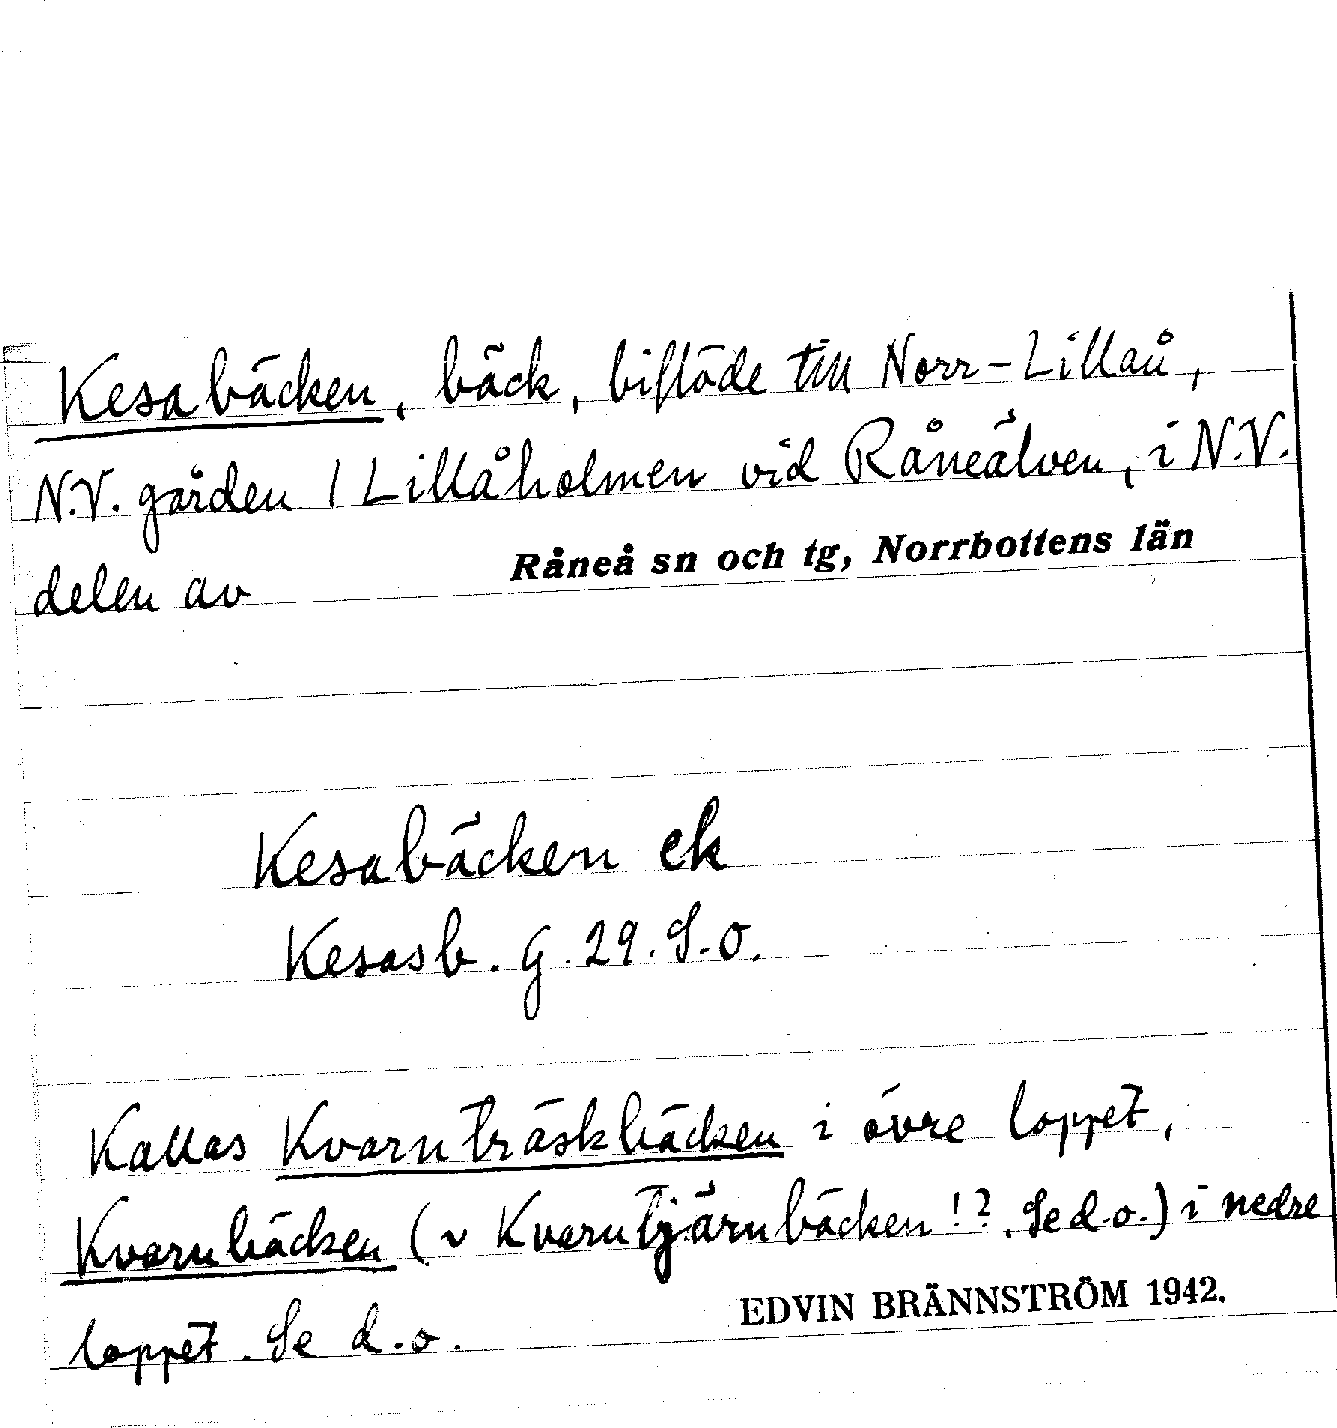 Kesabäcken, bäck, biflöde till Norr-Lillån,
N.V. gården / Lillåholmen vid Råneälven, i N.V.
delen av Råneå sn och tg, Norrbottens län
Kesabäcken ek
Kesasb. G. 29. S.O.
Kallas Kvarnträskbäcken i övre loppet,
Kvarnbäcken (v Kvarntjärnbäcken!? Se d.o.) i nedre
loppet. Se d.o.
EDVIN BRÄNNSTRÖM 1942.